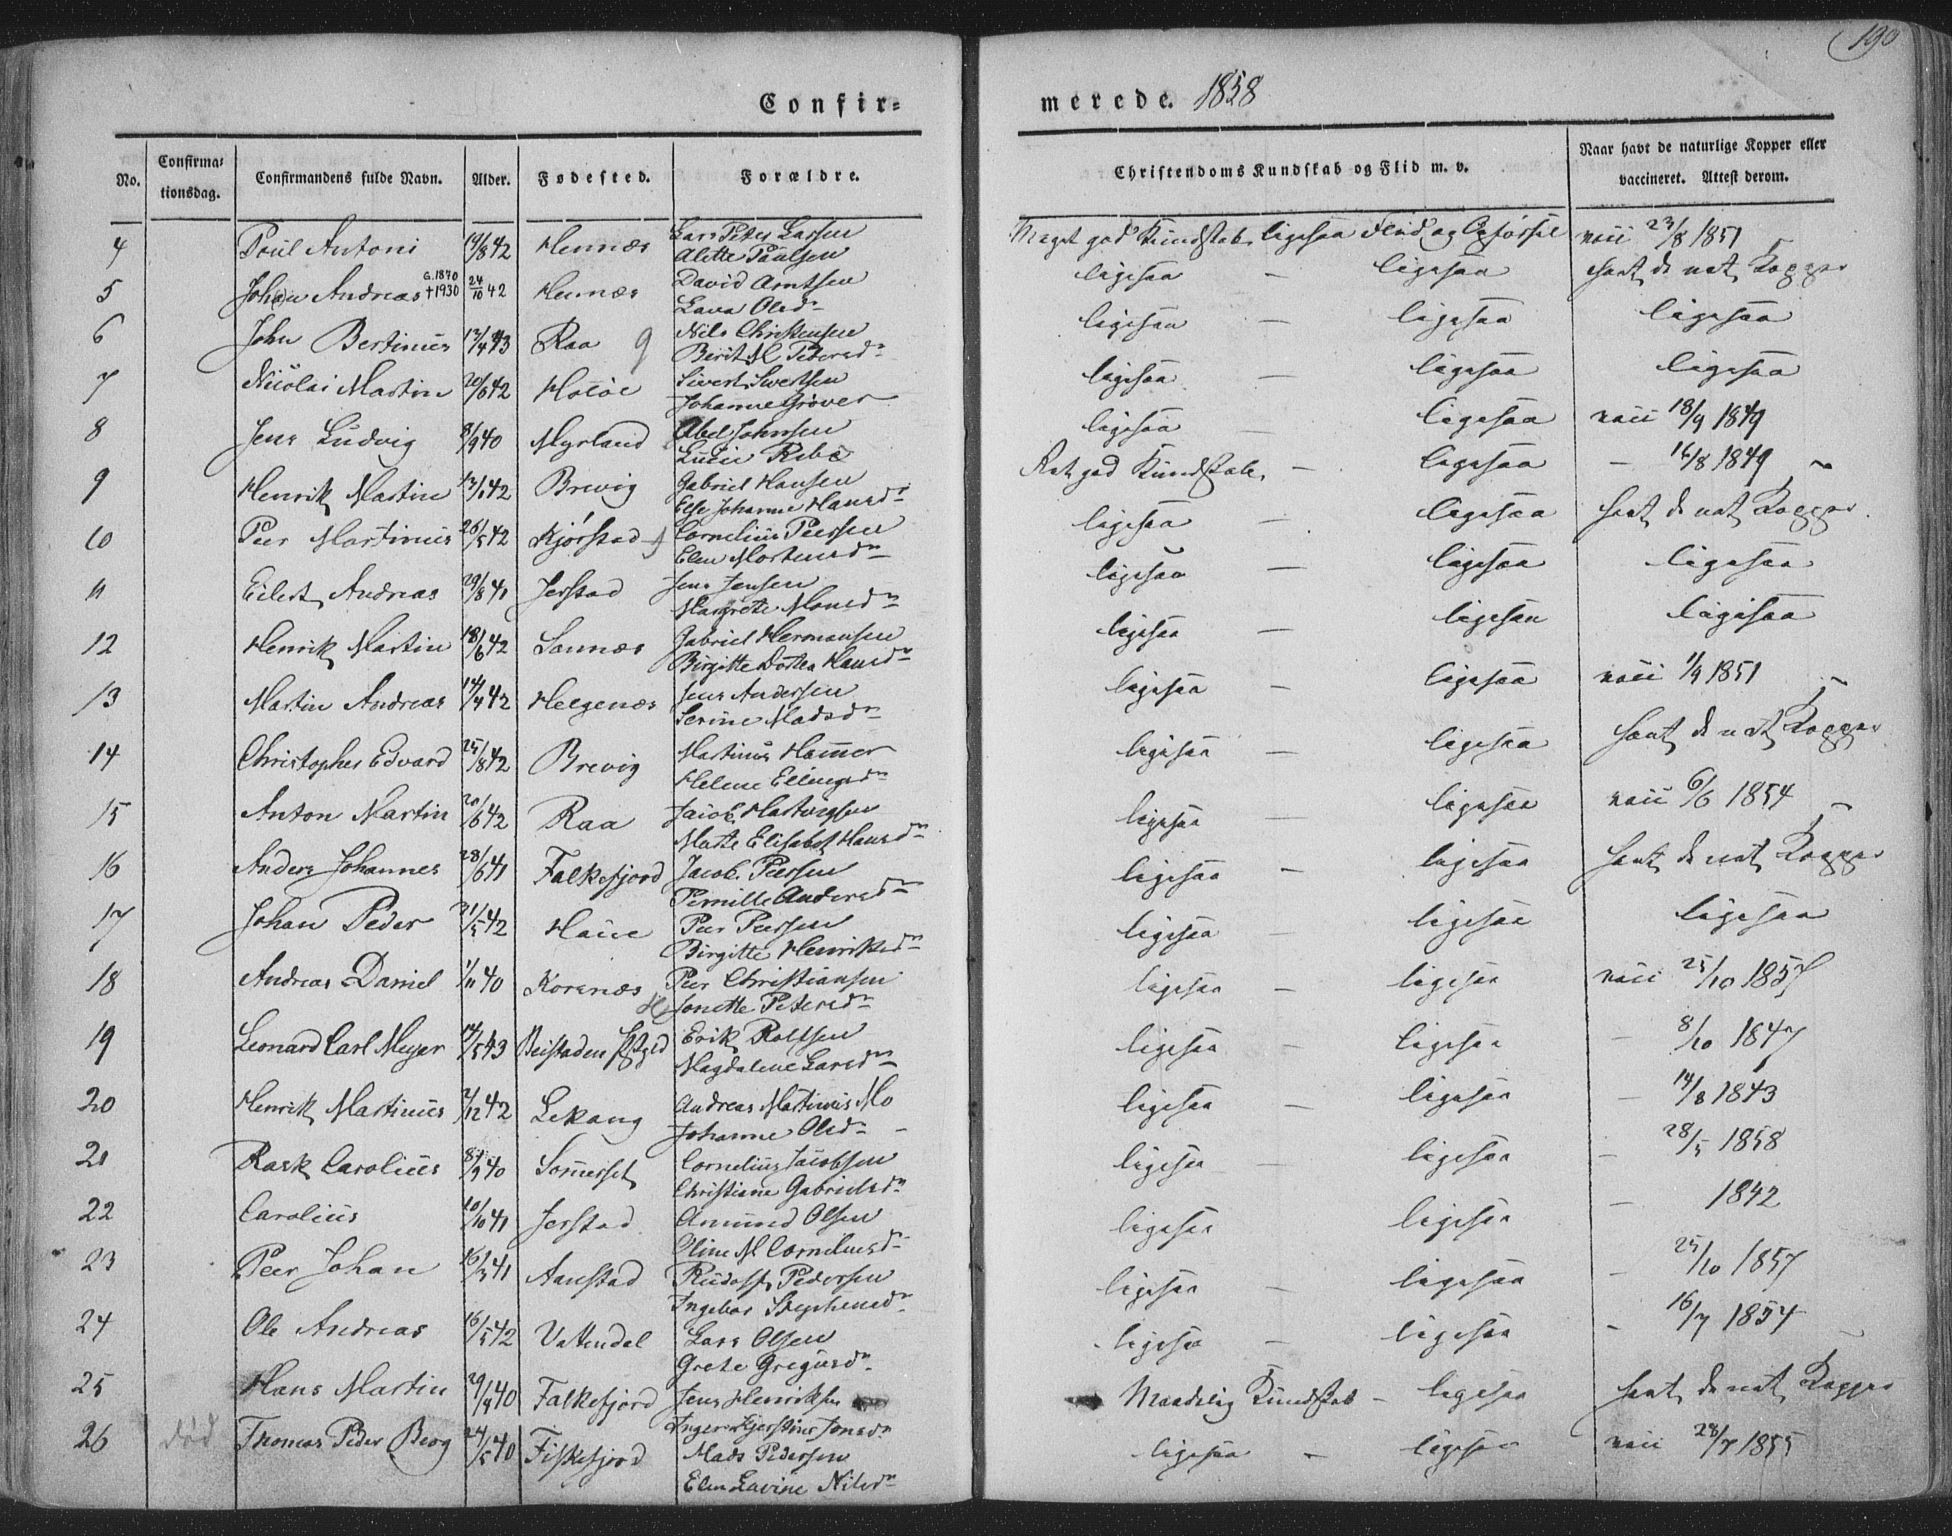 190
Confir-
merede. 1858
No.
Confirma-
tionsdag.
Confirmandens fulde Navn.
Alder.
Fødested.
Forældre.
Christendoms Kundskab og Flid m. v.
Naar havt de naturlige Kopper eller
vaccineret. Attest derom.
4 Poul Antoni 19/8 42 Hennæs Lars Peter Larsen Meget god Kundskab ligesaa Flid og Opførsel vacc 23/8 1851
Alette Paulsen
5 Johan Andreas G. 1870 †1930 24/10 42 Hennæs David Arntsen ligesaa — ligesaa havt de nat Kopper
Lava Olsdr
6 John Bertinus 13/4 43 Raa 9 Nils Christensen ligesaa — ligesaa ligesaa
Berit M Pedersdr
7 Nicolai Martin 20/6 42 Holøe Sivert Sivertsen ligesaa — ligesaa ligesaa
Johanne Grøver
8 Jens Ludvig 8/9 40 Myrland Abel Johnsen ligesaa — ligesaa vacc 18/9 1849
Lucie Rebe
9 Henrik Martin 13/1 42 Brevig Gabriel Hansen Ret god Kundskab — ligesaa — 16/8 1849
Else Johanne Hansdr
10 Peer Martinus 26/5 42 Kjørstad Cornelius Peersen ligesaa — ligesaa havt de nat Kopper
Elen Mortensdr
11 Eilert Andreas 29/8 41 Jerstad Jens Jensen ligesaa — ligesaa ligesaa
Margrete Monsdr
12 Henrik Martin 18/6 42 Sannæs Gabriel Hermansen ligesaa — ligesaa ligesaa
Birgitte Dorthea Hansdr
13 Martin Andreas 14/4 42 Helgenæs Jens Andersen ligesaa — ligesaa vacc 1/9 1851
Serine Madsdr
14 Christopher Edvard 25/8 42 Brevig Martinus Hammer ligesaa — ligesaa havt de nat Kopper
Helene Ellingsdr
15 Anton Martin 20/6 42 Raa Jacob Hartvigsen ligesaa — ligesaa vacc 6/6 1854
Marte Elisabet Hansdr
16 Anders Johannes 28/6 41 Falkefjord Jacob Peersen ligesaa — ligesaa havt de nat Kopper
Pernille Andersdr
17 Johan Peder 31/5 42 Haue Peer Peersen ligesaa — ligesaa ligesaa
Birgitte Henriksdr
18 Andreas Daniel 1/11 40 Korsnæs Peer Christiansen ligesaa — ligesaa vacc 25/10 1857
Jonette Petersdr
19 Leonard Carl Meyer 14/5 43 Beistaden Erik Roltsen ligesaa — ligesaa — 8/10 1847
Magdalene Larsdr
20 Henrik Martinus 2/12 42 Lekang Andreas Martinus Mo ligesaa — ligesaa — 14/8 1843
Johanne Olsdr
21 Rask Carolius 8/9 40 Sommerset Cornelius Jacobsen ligesaa — ligesaa — 28/5 1858
Christiane Gabrielsdr
22 Carolius 10/10 41 Jerstad Amund Olsen ligesaa ligesaa — 1842
Oline M Corneliusdr
23 Peer Johan 16/3 41 Aanstad Rudolf Pedersen ligesaa — ligesaa — 25/10 1857
Ingebor Stephensdr
24 Ole Andreas 16/5 42 Vattendal Lars Olsen ligesaa — ligesaa — 16/7 1854
Grete Gregusdr
25 Hans Martin 29/4 40 Falkefjord Jens Henriksen Maadelig Kundskab — ligesaa havt de nat Kopper
Inger Kjerstine Jonsdr
26 død Thomas Peder Berg 24/5 40 Fiskefjord Mads Pedersen ligesaa — ligesaa vacc 28/7 1855
Elen Lavine Nilsdr